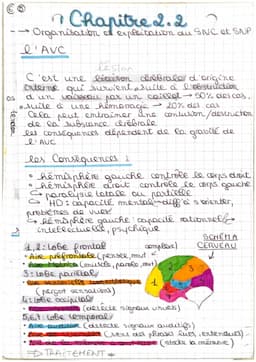 Chapitre 2.2
→ Organisation et exploitation du SNC et SNP
l'AVC
C'est une liaison cérébrale d'origine
externe qui survient suite à l'obstruction
d'un vaisseau par un caillot → 80% des cas.
suite à une hémorragie → 20% des cas
Cela peut entraîner une confusion/destruction
de la substance cérébrale.
les conséquences dépendent de la gravité de
l'AVC
les Conséquences :
• hémisphère gauche contrôle le corps droit
• hémisphère droit contrôle le corps gauche
↳ paralysie totale ou partielle
↳ HD : capacité mentale → diff à s'orienter,
problèmes de vues
↳ hémisphère gauche : capacité rationnelle
intellectuelle, psychique
SCHÉMA
CERVEAU
1, 2 : lobe frontal
• Aire préfrontale (penser, mvt complexe)
(muscle, parole, mvt)
3 : lobe pariétal
(perçoit sensations)
4 : lobe occipital
(détecte signaux visuels)
5, 6 : lobe temporal
• Aire (détecte signaux auditifs)
(sens des phrases lues, entendues)
(stocke la mémoire)
⇒ TRAITEMENT